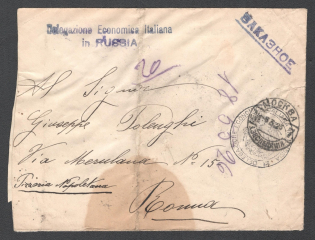 Delegazione Economica Italiana
in RUSSIA
ЗАКАЗНОЕ
Al Signor
Giuseppe Polenghi
Via Merulana N. 15
Trattoria Napoletana
Roma
МОСКВА